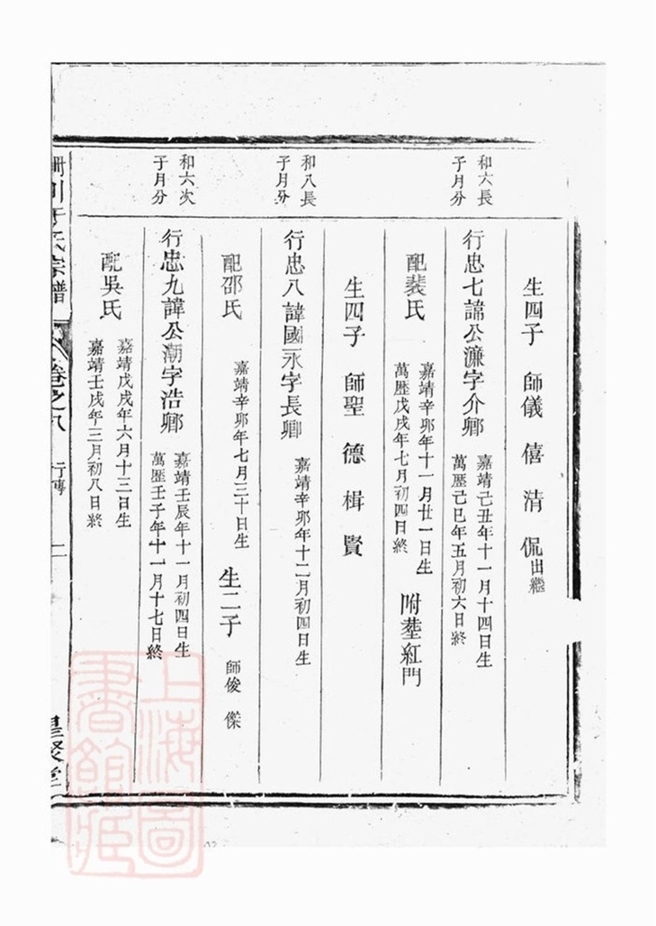 生四子 師儀 僖 清 侃出繼
和六長
于月分
行忠七諱公濂字介卿
嘉靖己丑年十一月十四日生
萬歷己巳年五月初六日終
配裴氏
嘉靖辛卯年十一月廿一日生
萬歷戊戌年七月初四日終
附塟紅門
生四子 師聖 德 楫 賢
和八長
于月分
行忠八諱國永字長卿
嘉靖辛卯年十二月初四日生
配邵氏
嘉靖辛卯年七月三十日生
生二子 師俊 傑
和六次
于月分
行忠九諱公潮字浩卿
嘉靖壬辰年十一月初四日生
萬歷壬子年十一月十七日終
配吳氏
嘉靖戊戌年六月十三日生
嘉靖壬戌年三月初八日終
川于氏宗譜
卷之八 行傳 二
聖賢堂
上海圖
書館藏